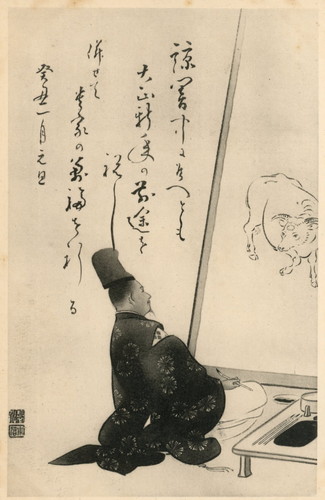 諒闇中に候へとも
大正新年の前途を
祝し
併せて
貴家の萬福を祈る
癸丑一月元旦